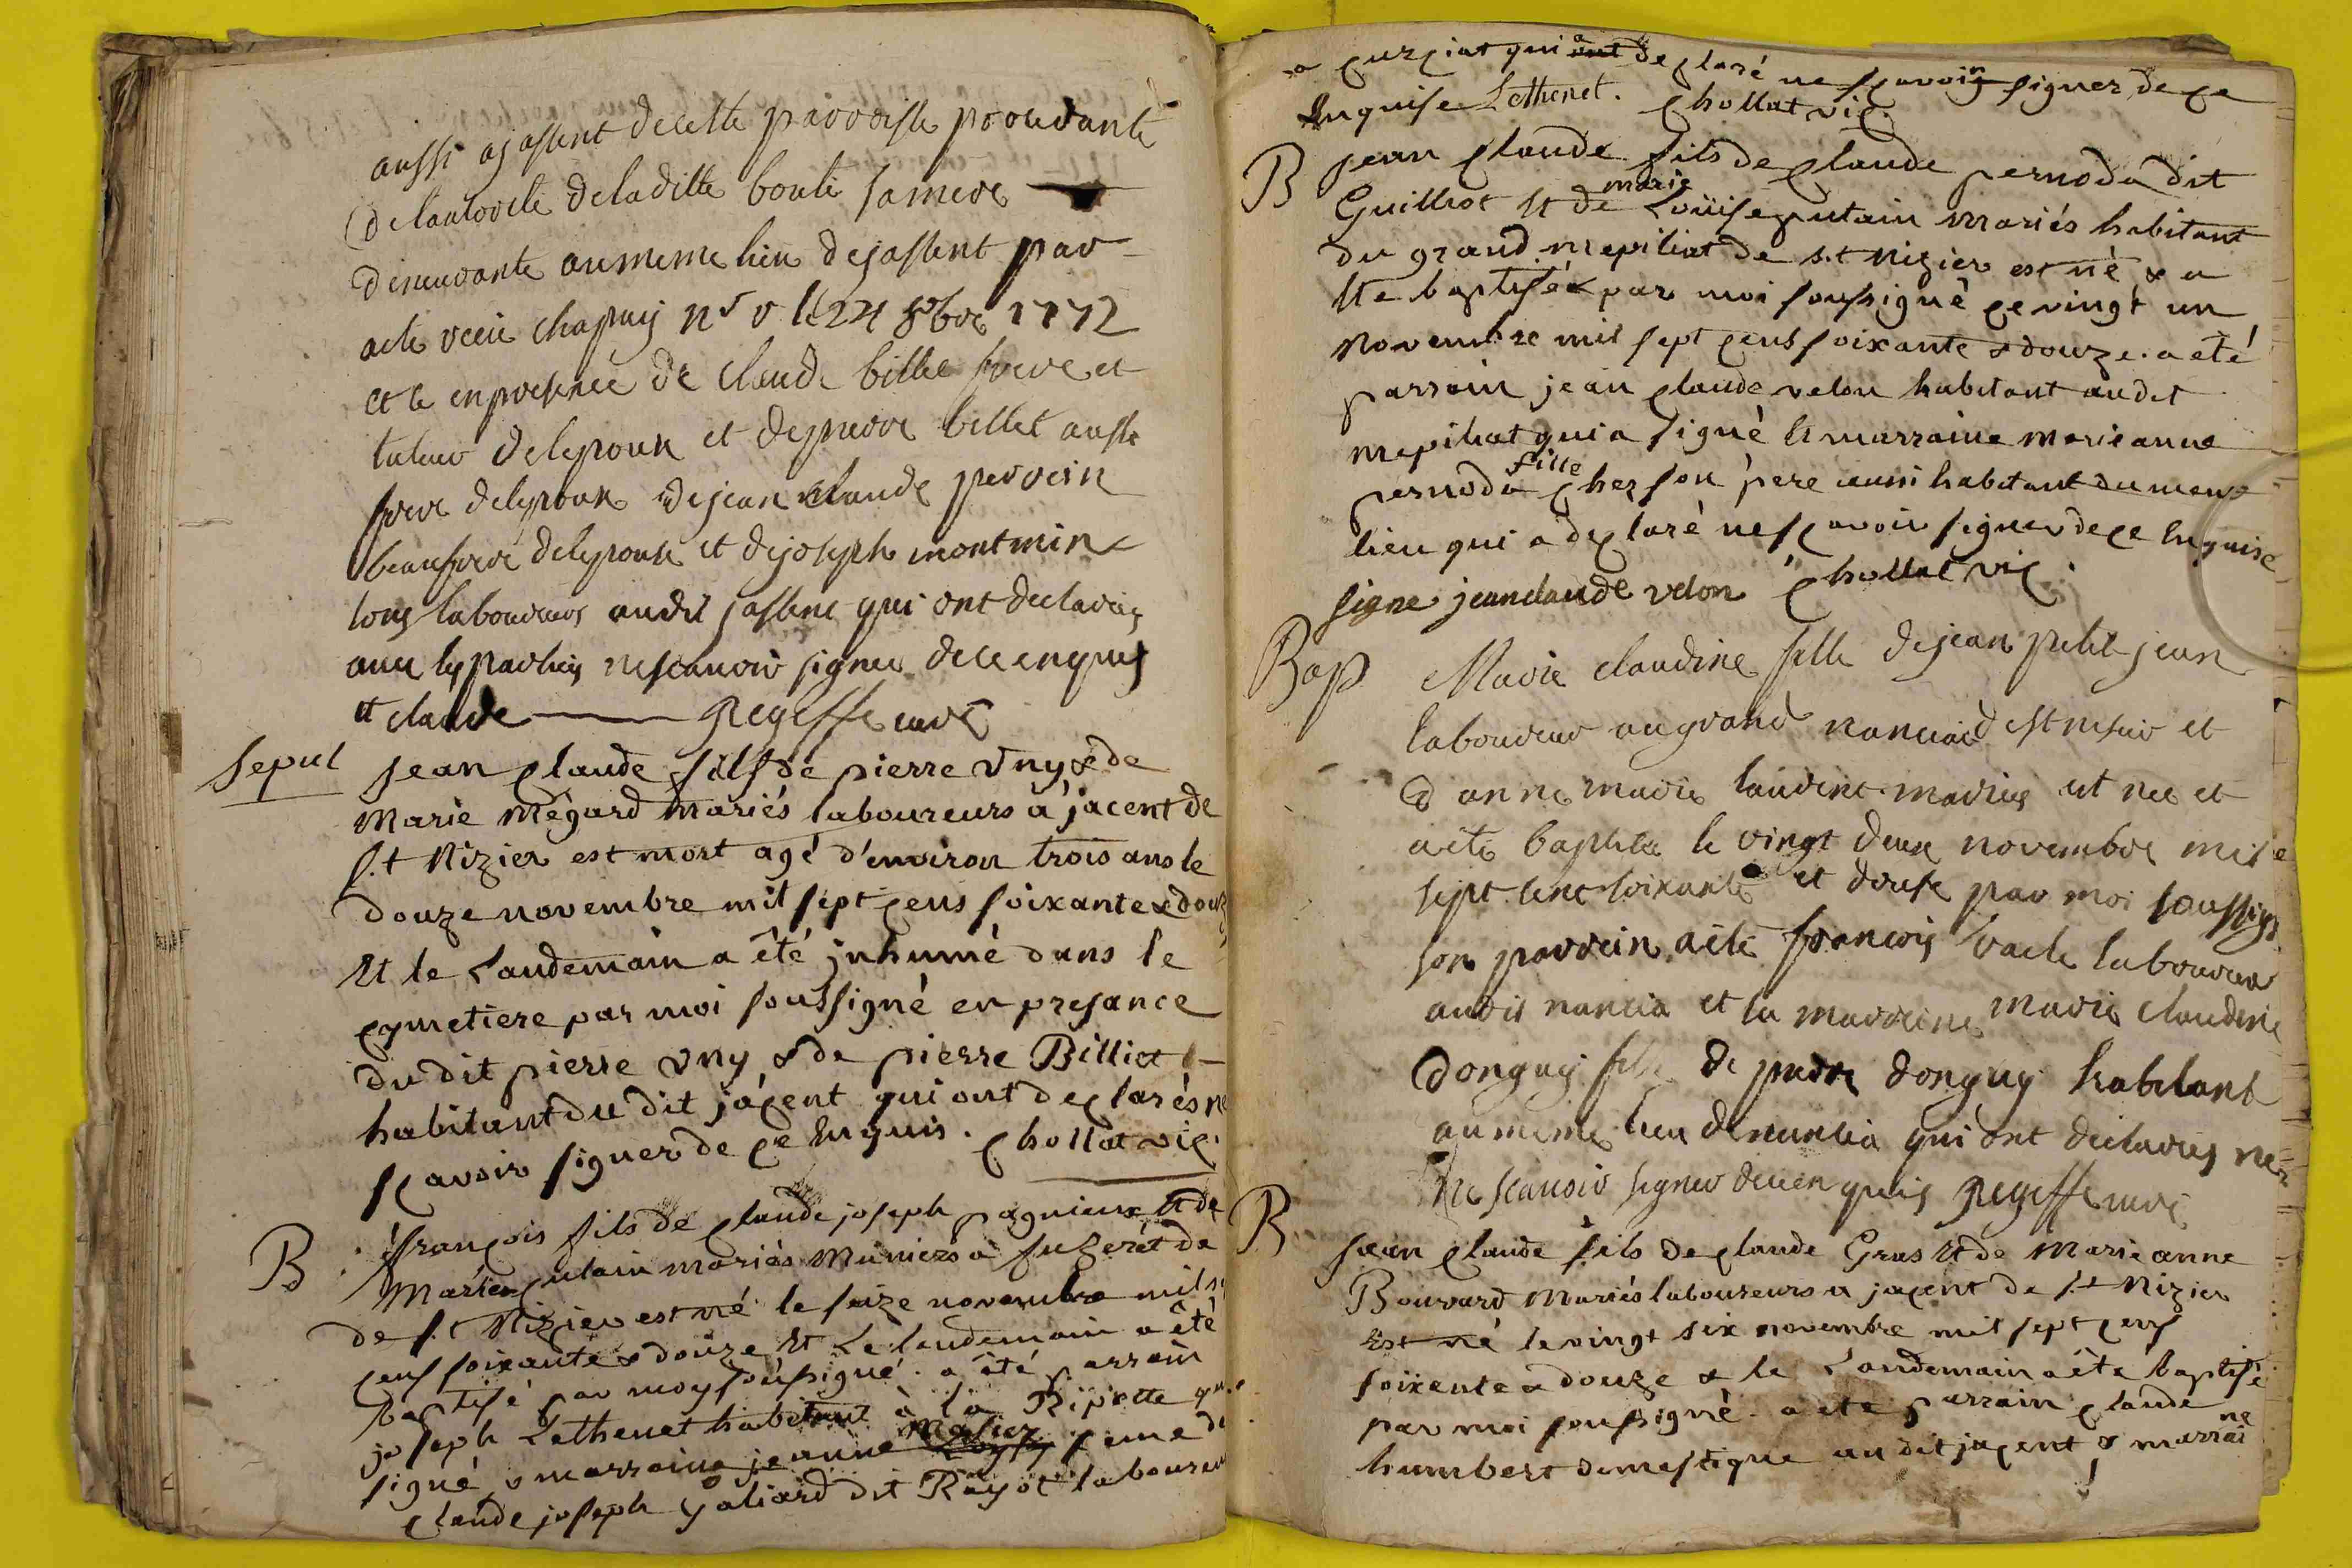 aussi ajassent de cette parroisse procedante
de lautorité de laditte bouli sa mere
demeurante au meme lieu de jassent par
acte recu chapuis nre r le 24 8bre 1772
et ce en presence de claude billet frere et
tuteur de lepoux et de pierre billet aussi
frere de lepoux de jean claude perrin
beaufrere de lepouse et de joseph montmin
tous laboureurs audit jassent qui ont declarés
avec les parties ne scauoir signer de ce enquis
et claude Regeffe curé
Sepul jean claude fils de pierre Vny & de
Marie Mégard mariés laboureurs à jacent de
S.t Nizier est mort agé d'environ trois ans le
douze novembre mil sept cens soixante & douz
Et le Landemain a été jnhumé dans le
cymetiere par moi soussigné en presance
du dit pierre Vny & de pierre Billiet
habitant du dit jacent qui ont declarés ne
scavoir signer de ce Enquis. Chollat vic.
B françois fils de claude joseph pagnieux Et de
Marie putain mariés Muniers à fuzeret de
de S.t Nizier est né le seize novembre mil s
cens soixante & douze Et Le landemain a été
baptisé par moy soussigné. a été parrain
joseph Lethenet habitant à la Ripette qui a
signé & marraine jeanne Mazier feme de
claude joseph galiard dit Rayot laboureu
a curciat qui a ont declaré ne scavoir signer de ce
Enquise Lethenet. Chollat vic.
B jean claude fils de claude pernodu dit
Guilliot Et de marie Loüise putain mariés habitant
du grand mepiliat de s.t Nizier est né & a
Ete baptisé par moi soussigné ce vingt un
Novembre mil sept cens soixante & douze. a été
parrain jean claude velon habitant audit
mepiliat qui a signé Et marraine marie anne
pernodu fille chez son pere aussi habitant du meme
lieu qui a declaré ne scavoir signer de ce Enquise
signe jean claude velon Chollat vic.
Bap Marie claudine fille de jean petit jean
laboureur au grand nanciad st nisier et
d anne marie laurent mariés est nee et
a été baptisée le vingt deux novembre mil
sept cent soixante et douse par moi soussigné
son parrein a été francois vacle laboureur
audit nancia et la marreine marie claudine
donguy fille de pierre donguy habitant
au meme lieu de nancia qui ont declarés ne
ne scauoir signer de ce enquis Regeffe curé
B jean claude fils de claude Gras Et de Marie anne
Bouvard Mariés laboureurs a jacent de S.t Nizier
Est né le vingt six novembre mil sept cens
soixente & douze & le Landemain a été baptisé
par moi soussigné. a été parrain claude
humbert domestique au dit jacent & marraine